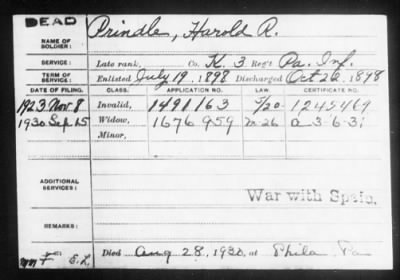 DEAD
NAME OF SOLDIER: Prindle, Harold R.
SERVICE: Late rank, Co. K, 3 Reg't Pa. Inf.
TERM OF SERVICE: Enlisted July 19, 1898 Discharged Oct 22, 1898
DATE OF FILING. CLASS. APPLICATION NO. LAW. CERTIFICATE NO.
1923 Nov 8 Invalid, 1491163 1245469
1930 Sep 15 Widow, 1676959 M-26 a-3-6-31
Minor,
ADDITIONAL SERVICES:
War with Spain.
REMARKS:
Died Aug 28, 1930, at Phila Pa